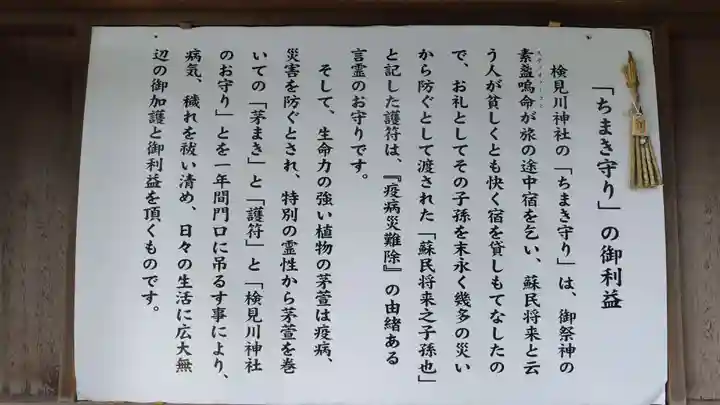 「ちまき守り」の御利益
検見川神社の「ちまき守り」は、御祭神の
素盞嗚命が旅の途中宿を乞い、蘇民将来と云
う人が貧しくとも快く宿を貸しもてなしたの
で、お礼としてその子孫を末永く幾多の災い
から防ぐとして渡された「蘇民将来之子孫也」
と記した護符は、『疫病災難除』の由緒ある
言霊のお守りです。
そして、生命力の強い植物の茅萱は疫病、
災害を防ぐとされ、特別の霊性から茅萱を巻
いての「茅まき」と「護符」と「検見川神社
のお守り」とを一年間門口に吊るす事により、
病気、穢れを祓い清め、日々の生活に広大無
辺の御加護と御利益を頂くものです。